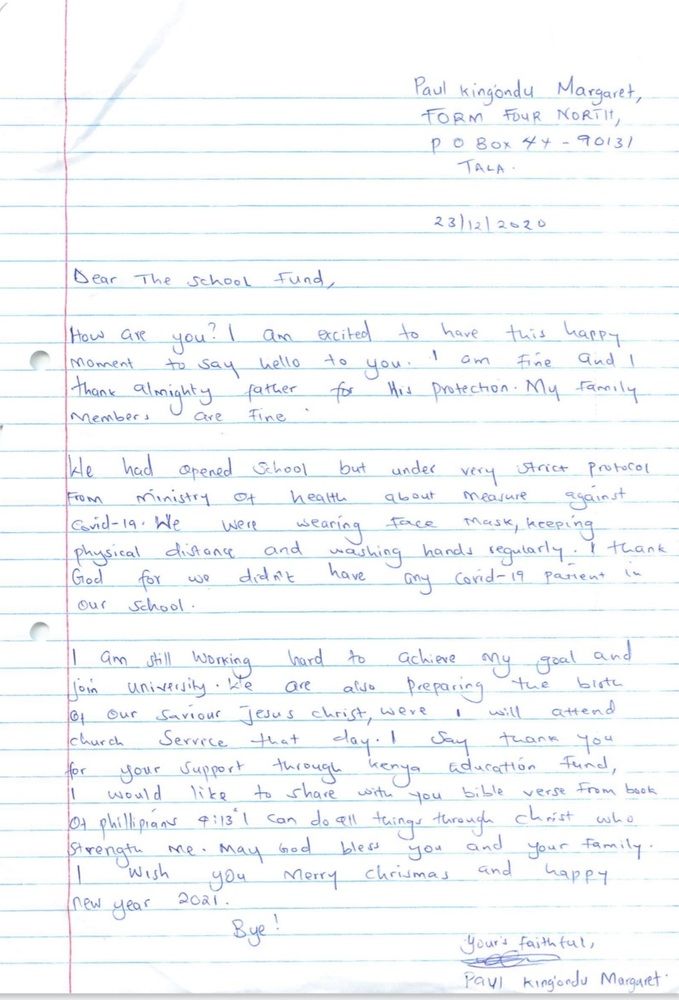 Paul King'ondu Margaret,
FORM FOUR NORTH,
P O Box 44 - 90131
TALA.
23/12/2020
Dear The School Fund,
How are you? I am excited to have this happy
Moment to say hello to you. I am fine and I
thank almighty father for His protection. My family
members are fine.
We had opened school but under very strict protocol
from ministry of health about measure against
Covid-19. We were wearing face mask, keeping
physical distance and washing hands regularly. I thank
God for we didn't have any Covid-19 patient in
our school.
I am still working hard to achieve my goal and
join university. We are also preparing the birth
of our saviour Jesus christ, were I will attend
church service that day. I say thank you
for your support through Kenya Education Fund,
I would like to share with you bible verse from book
of phillipians 4:13 "I can do all things through christ who
strength me. May God bless you and your family.
I wish you Merry chrismas and happy
new year 2021.
Bye!
Yours faithful,
Paul King'ondu Margaret.